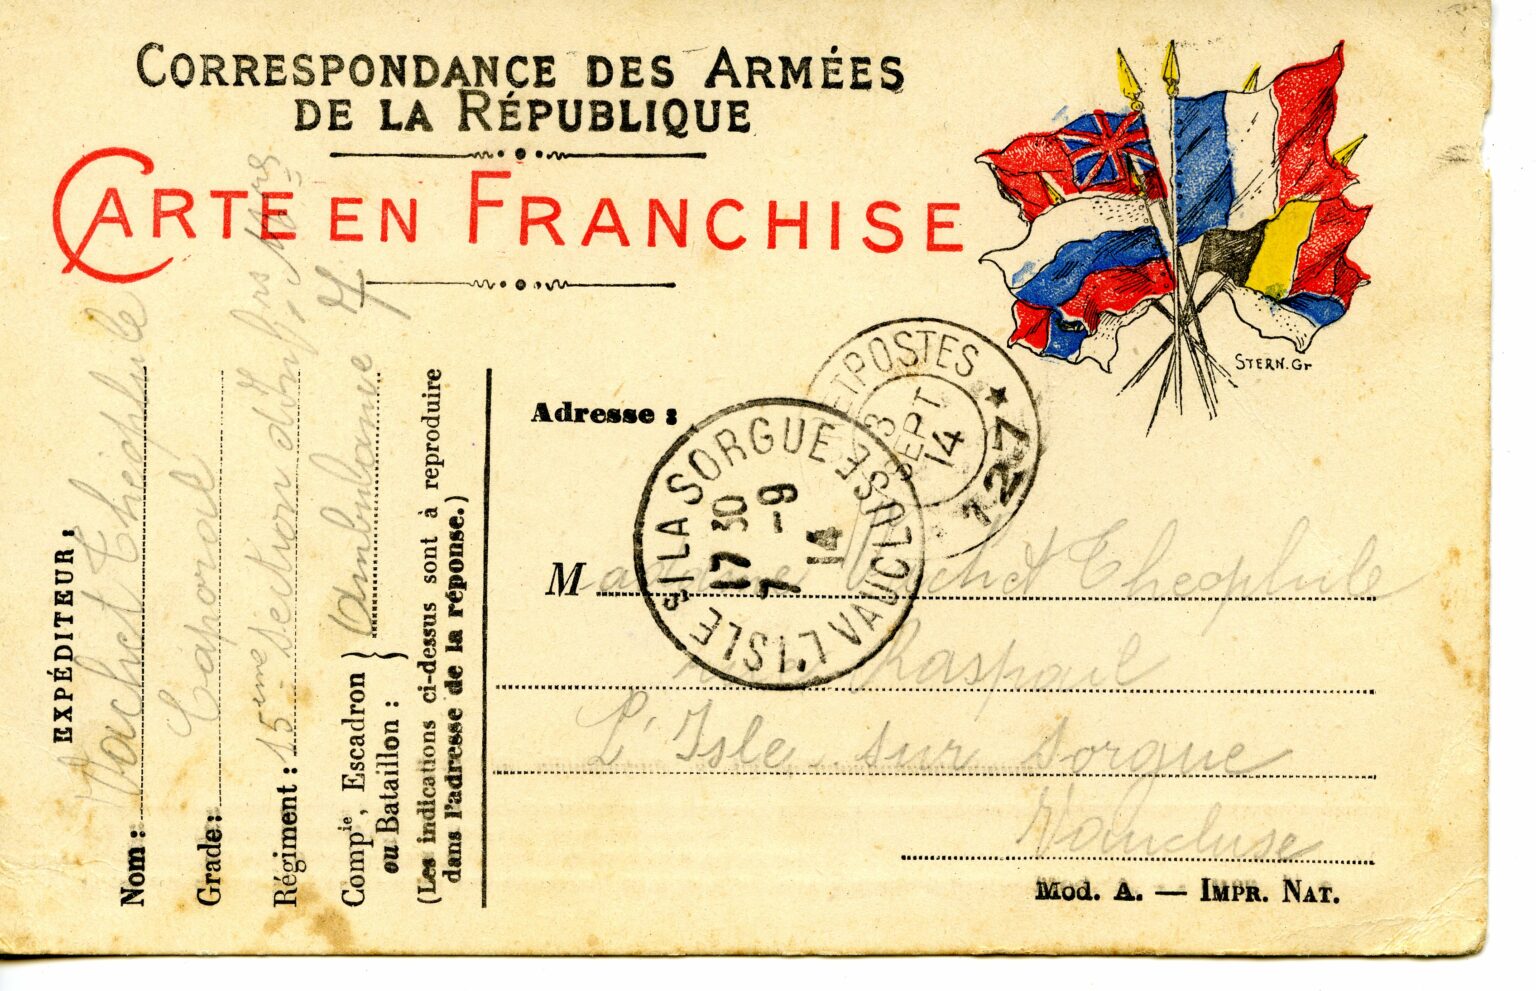 CORRESPONDANCE DES ARMÉES
DE LA RÉPUBLIQUE
CARTE EN FRANCHISE
STERN. Gr
EXPÉDITEUR :
Nom : Vachet Théophile
Grade : Caporal
Régiment : 15ème section d'Infirs Mres
Compie, Escadron
ou Bataillon : } Ambulance 7
(Les indications ci-dessus sont à reproduire
dans l'adresse de la réponse.)
Adresse :
ET POSTES
3
SEPT
14
★ 127
L'ISLE S/ LA SORGUE VAUCLUSE
17 30
7 -9
14
Madame Vachet Théophile
rue Raspail
L'Isle sur Sorgue
Vaucluse
MOD. A. — IMPR. NAT.